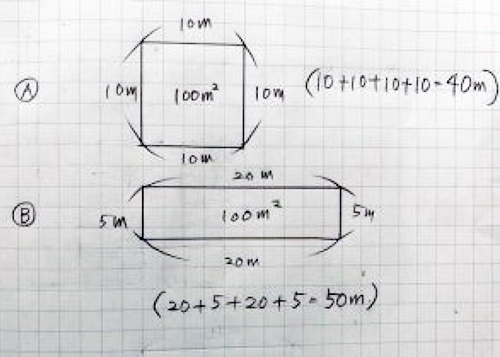 10m
Ⓐ 10m 100m² 10m (10+10+10+10=40m)
10m
20m
Ⓑ 5m 100m² 5m
20m
(20+5+20+5=50m)